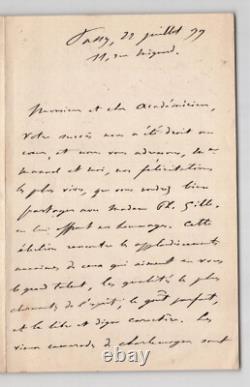 Passy, 22 juillet 99
11, rue
Monsieur et cher Académicien,
votre succès nous a été droit au
cœur, et nous vous adressons, de
manuel et moi, nos félicitations
les plus vives, que vous voudrez bien
partager avec Madame Ph. Gille
en lui offrant nos hommages. Cette
élection rencontre les applaudissements
de ceux qui aiment en vous
le grand talent, les qualités les plus
charmantes de l'esprit, le goût parfait,
et le libre et digne caractère. Les
vieux camarades de charlemagne sont
© ebay